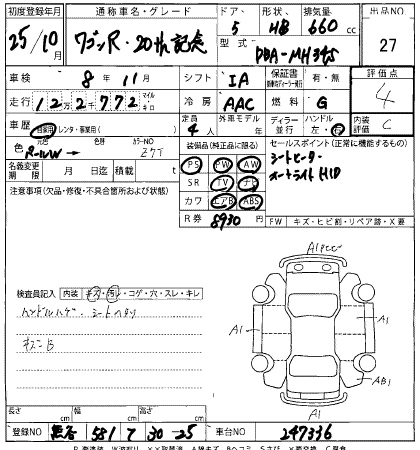 初度登録年月 通称車名・グレード ドア 形状 排気量 出品NO
25/10月 ワゴンR・20th記念 5 HB 660cc 27
型式 DBA-MH34S
車検 8年11月 シフト IA 保証書 有・無 評価点
走行 12万2千772 マイル キロ 冷房 AAC 燃料 G 4
車歴 自家用 レンタ・事業用( ) 定員 4人 外車モデル ディーラー 並行 ハンドル 左・右 内装評価 C
色 元色 パールW → 色替 カラーNO Z7T 装備品(純正品に限る) セールスポイント(正常に機能するもの)
名義変更期限 月 日 積載 t PS PW AW シートヒーター
注意事項(欠品・修復・不具合箇所および状態) SR TV ナビ オートライト HID
カワ エアB ABS
R券 8930円 FW キズ・ヒビ割・リペア跡・X要
A1PCC
検査員記入 内装 キズ・汚レ・コゲ・穴・スレ・キレ
ハンドルハゲ・シートヘタリ
A1 A1
AB1
A1
長さ cm 幅 cm 高さ cm
登録NO 熊谷 581 ワ 30-25 車台NO 247336